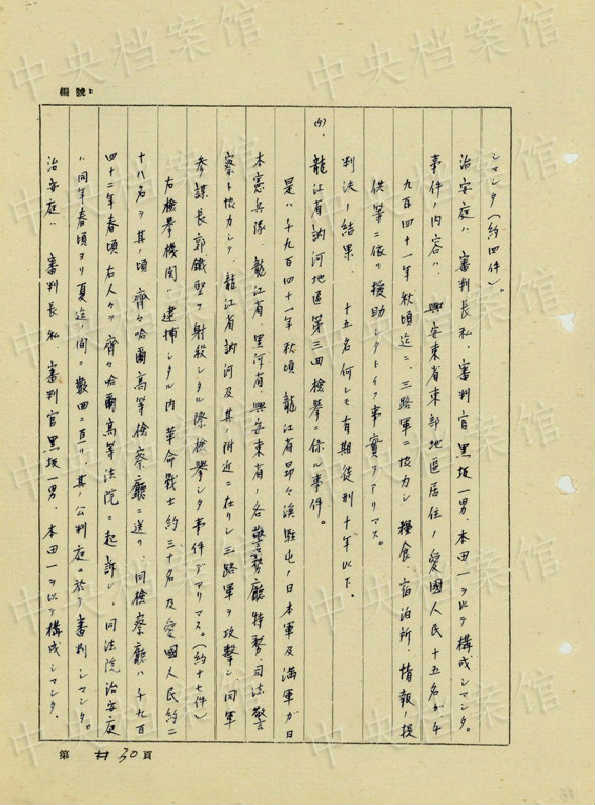 中央档案馆
編號:
シマシタ(約四件)。
治安庭ハ 審判長私、審判官黒坂一男、本田一ヲ以テ構成シマシタ。
事件ノ内容ハ、興安東省東部地區居住ノ愛國人民十五名ガ千
九百四十一年秋頃迄ニ、三路軍ニ協力シ 糧食、宿泊所、情報ノ提
供等ニ依リ援助シタトイフ事實デアリマス。
判決ノ結果、 十五名何レモ有期徒刑十年以下。
龍江省訥河地區第三回檢擧ニ係ル事件。
是ハ千九百四十一年秋頃 龍江省昂々溪駐屯ノ日本軍及滿軍ガ日
本憲兵隊、龍江省、黒河省、興安東省ノ各警務廳特務、司法警
察ト協力シテ、龍江省訥河及其ノ附近ニ在リシ三路軍ヲ攻擊シ、同軍
參謀長郭鐵堅ヲ射殺シタル際檢擧シタ事件デアリマス。(約十七件)
右檢擧機関ハ逮捕シタル内革命戰士約三十名及愛國人民約二
十八名ヲ其ノ頃 齊々哈爾高等檢察廳ニ送リ、同檢察廳ハ千九百
四十二年春頃右人々ヲ齊々哈爾高等法院ニ起訴シ。同法院治安庭
ハ同年春頃ヨリ夏迄ノ間ニ數回ニ亘リ、其ノ公判庭ニ於テ審判シマシタ。
治安庭ハ 審判長私 審判官黒坂一男、本田一ヲ以テ構成シマシタ。
第 30 頁